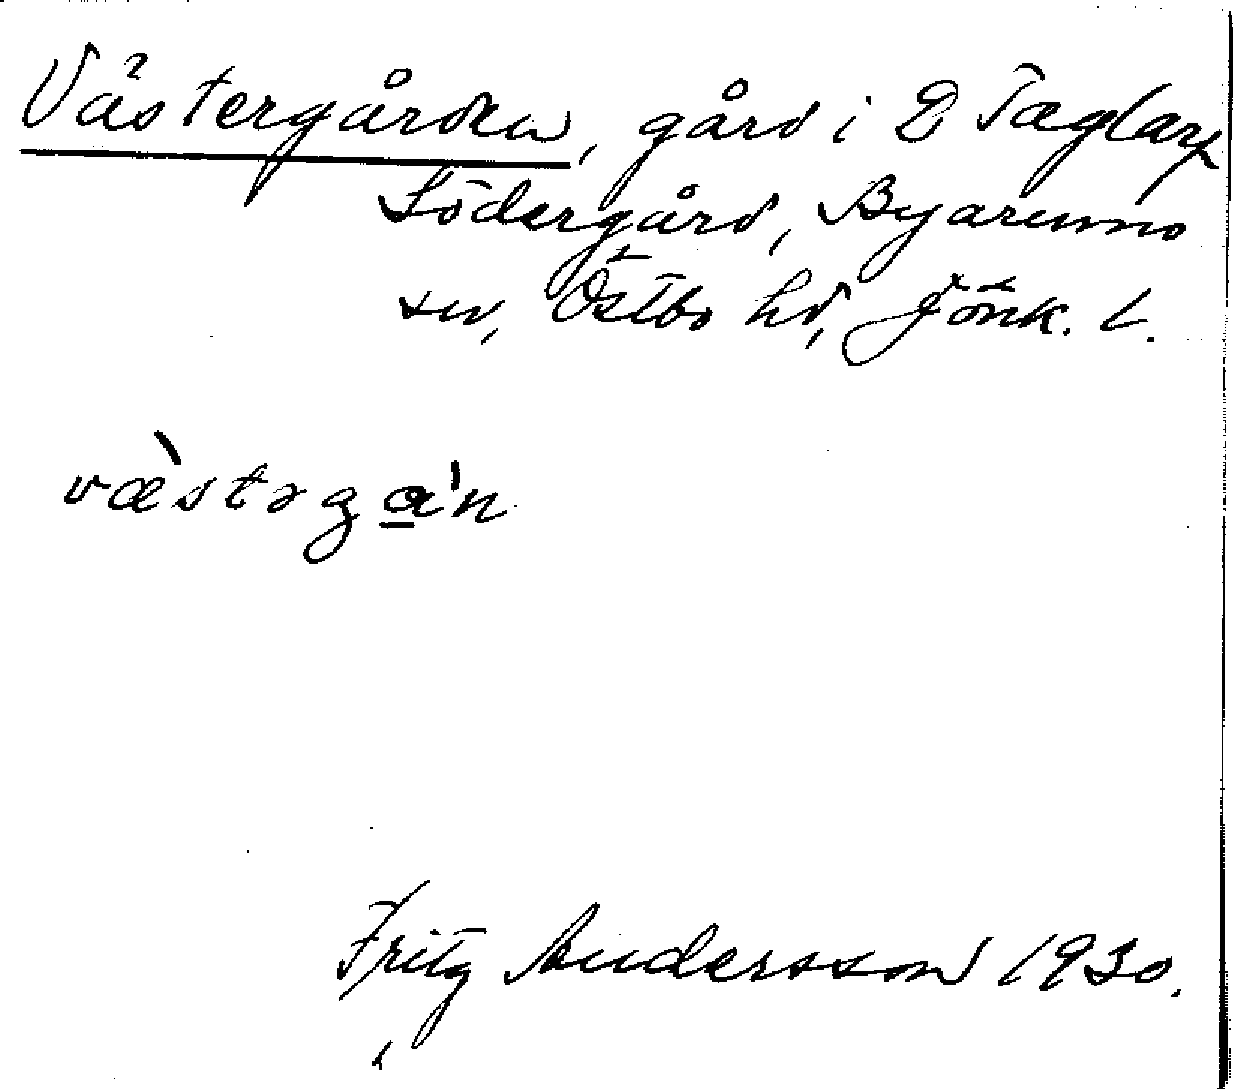 Västergården, gård i Ö Taglarp
Södergård, Byarums
sn, Östbo hd, Jönk. L.
væ̀stərga̲'n
Fritz Andersson 1930.